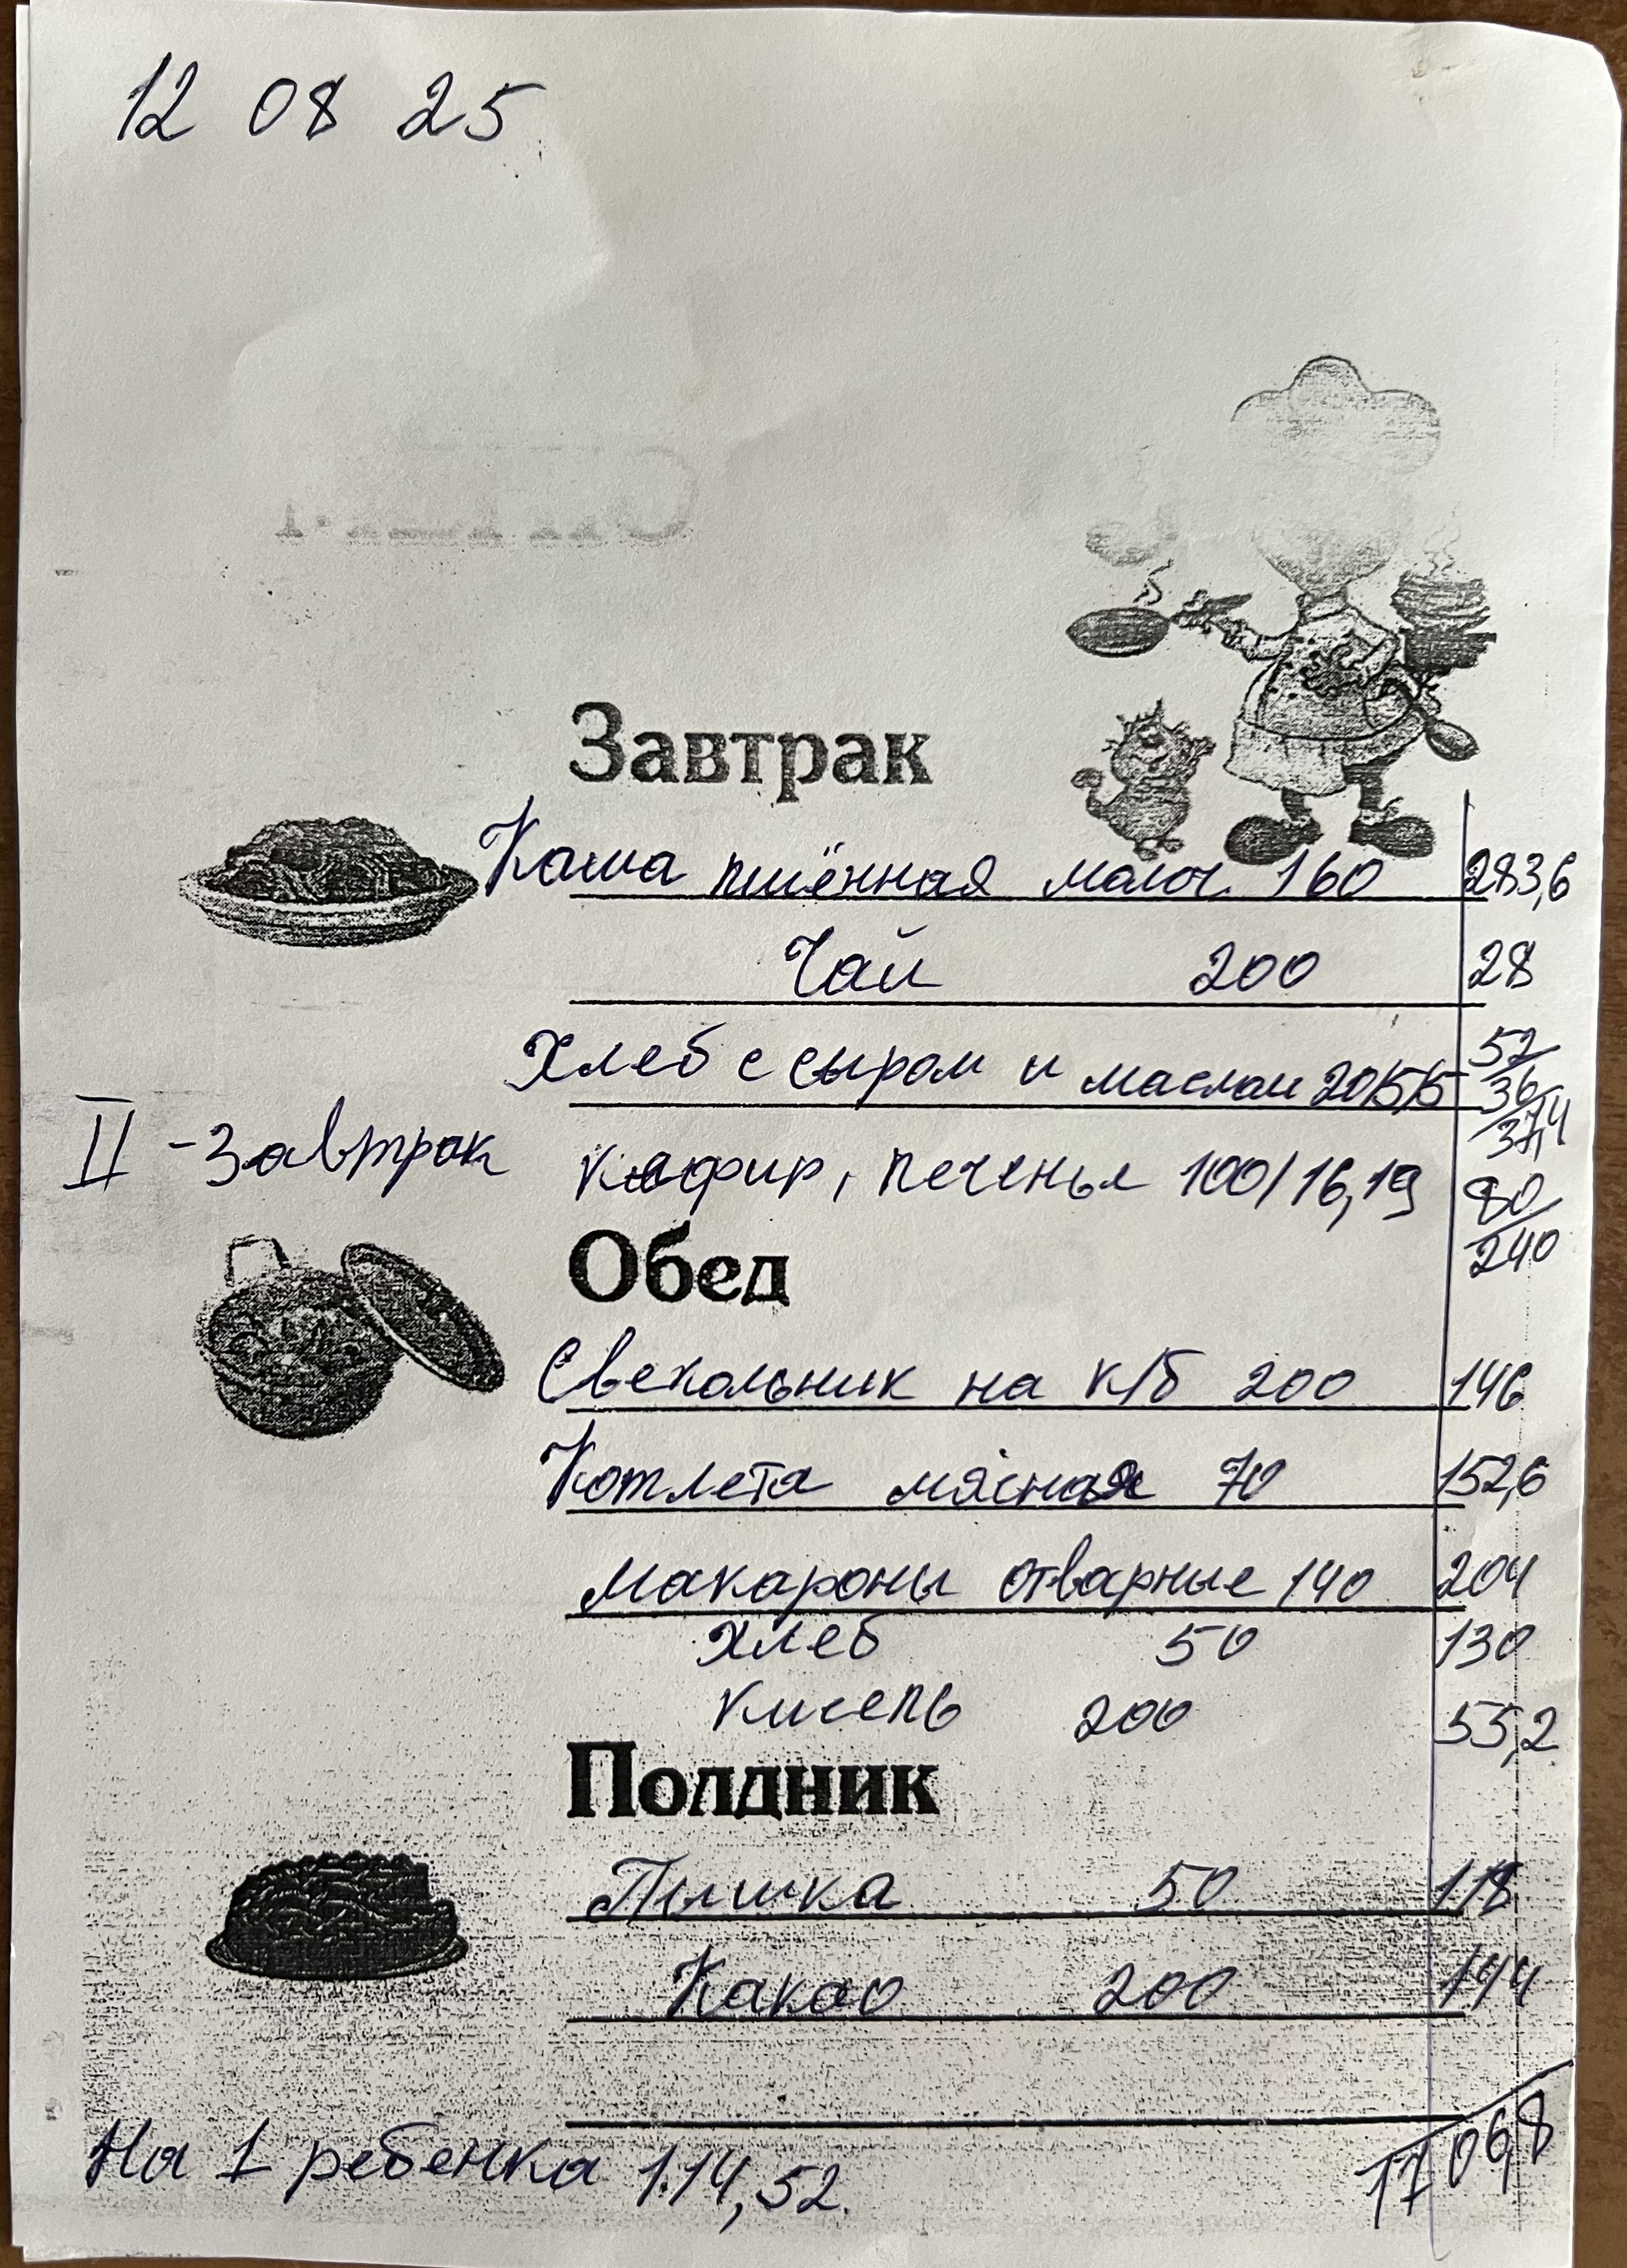 12 08 25
Завтрак
Каша пшённая молоч. 160 283,6
Чай 200 28
Хлеб с сыром и маслом 20/5/5 52/36/37,4
II - Завтрак кефир, печенье 100/16,19 80/240
Обед
Свекольник на к/б 200 146
Котлета мясная 70 152,6
Макароны отварные 140 204
Хлеб 50 130
Кисель 200 55,2
Полдник
Пышка 50 118
Какао 200 144
1706,8
На 1 ребенка 114,52.